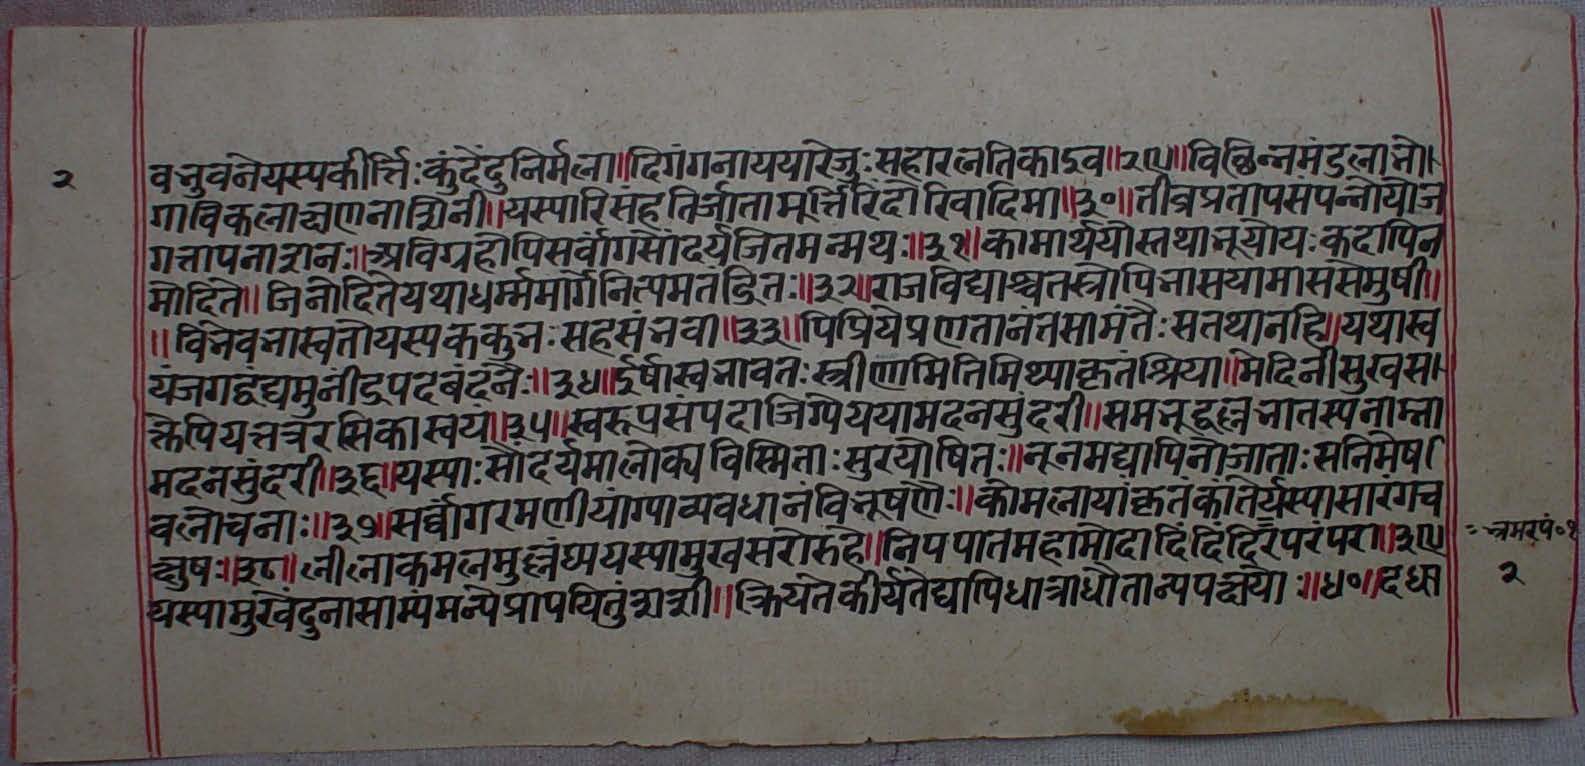 २
वभुवनेयस्यकीर्त्तिःकुंदेंदुनिर्मला॥दिगंगनाययारेजुःसहारलतिकाइव॥२९॥विछिन्नमंडलाभो
गाविकलाक्षणनाशिनी॥यस्यारिसंहतिर्जातामूर्त्तिरिंदोरिवादिमा॥३०॥तीव्रप्रतापसंपन्नोयोज
गत्तापनाशनः॥अविग्रहोपिसर्वांगसौंदर्यजितमन्मथः॥३१॥कामार्थयोस्तथाभूयोयःकदापिन
मोदिते॥जिनोदितेयथाधर्म्ममार्गेनित्यमतंद्रितः॥३२॥राजविद्याश्चतस्त्रोपिभासयामाससेमुषी॥
॥विभेवभास्वतोयस्यककुभःसहसंभवा॥३३॥पिप्रियेप्रणतानंतसामंतैःसतथानहि॥यथास्व
यंजगद्वंद्यमुनींद्रपदबंदनैः॥३४॥ईर्षास्वभावतःस्त्रीणामितिमिथ्याकृतंश्रिया॥मेदिनीसुखसा
क्तेपियत्तत्ररसिकास्वयं॥३५॥स्वरूपसंपदाजिग्येययामदनसुंदरी॥समभूद्वल्लभातस्यनाम्ना
मदनसुंदरी॥३६॥यस्याःसौंदर्यमालोक्यविस्मिताःसुरयोषितः॥नूनमद्यापिनोजाताःसनिमेष
वलोचनाः॥३७॥सर्वांगरमणीयांग्याव्यवधानंविभूषणैः॥कोमलायांकृतंकांतिर्यस्यासारंगच
क्षुषः॥३८॥लीलाकमलमुल्लंघ्ययस्यामुखसरोरुहे॥निपपातमहामोदादिंदिंदिरपरंपरा॥३९
= भ्रमरपं॰१
द्यस्यामुखेंदुनासाम्यंमन्येप्रापयितुंशशी॥क्रियतेकीर्यतेद्यापिधात्राधौतान्यपक्षयोः॥४०॥दधा
२